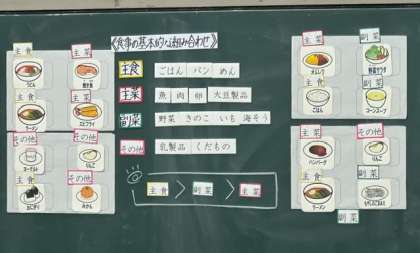 《食事の基本的な組み合わせ》
主食 ごはん パン めん
主菜 魚 肉 卵 大豆製品
副菜 野菜 きのこ いも 海そう
その他 乳製品 くだもの
主食 > 副菜 > 主菜
主食 主菜
うどん 焼き魚
主食 主菜
ラーメン エビフライ
その他 その他
ヨーグルト りんご
主食 その他
おにぎり みかん
主菜 副菜
オムレツ 野菜サラダ
主食 副菜
ごはん コーンスープ
主菜 その他
ハンバーグ りんご
主食
ラーメン
副菜